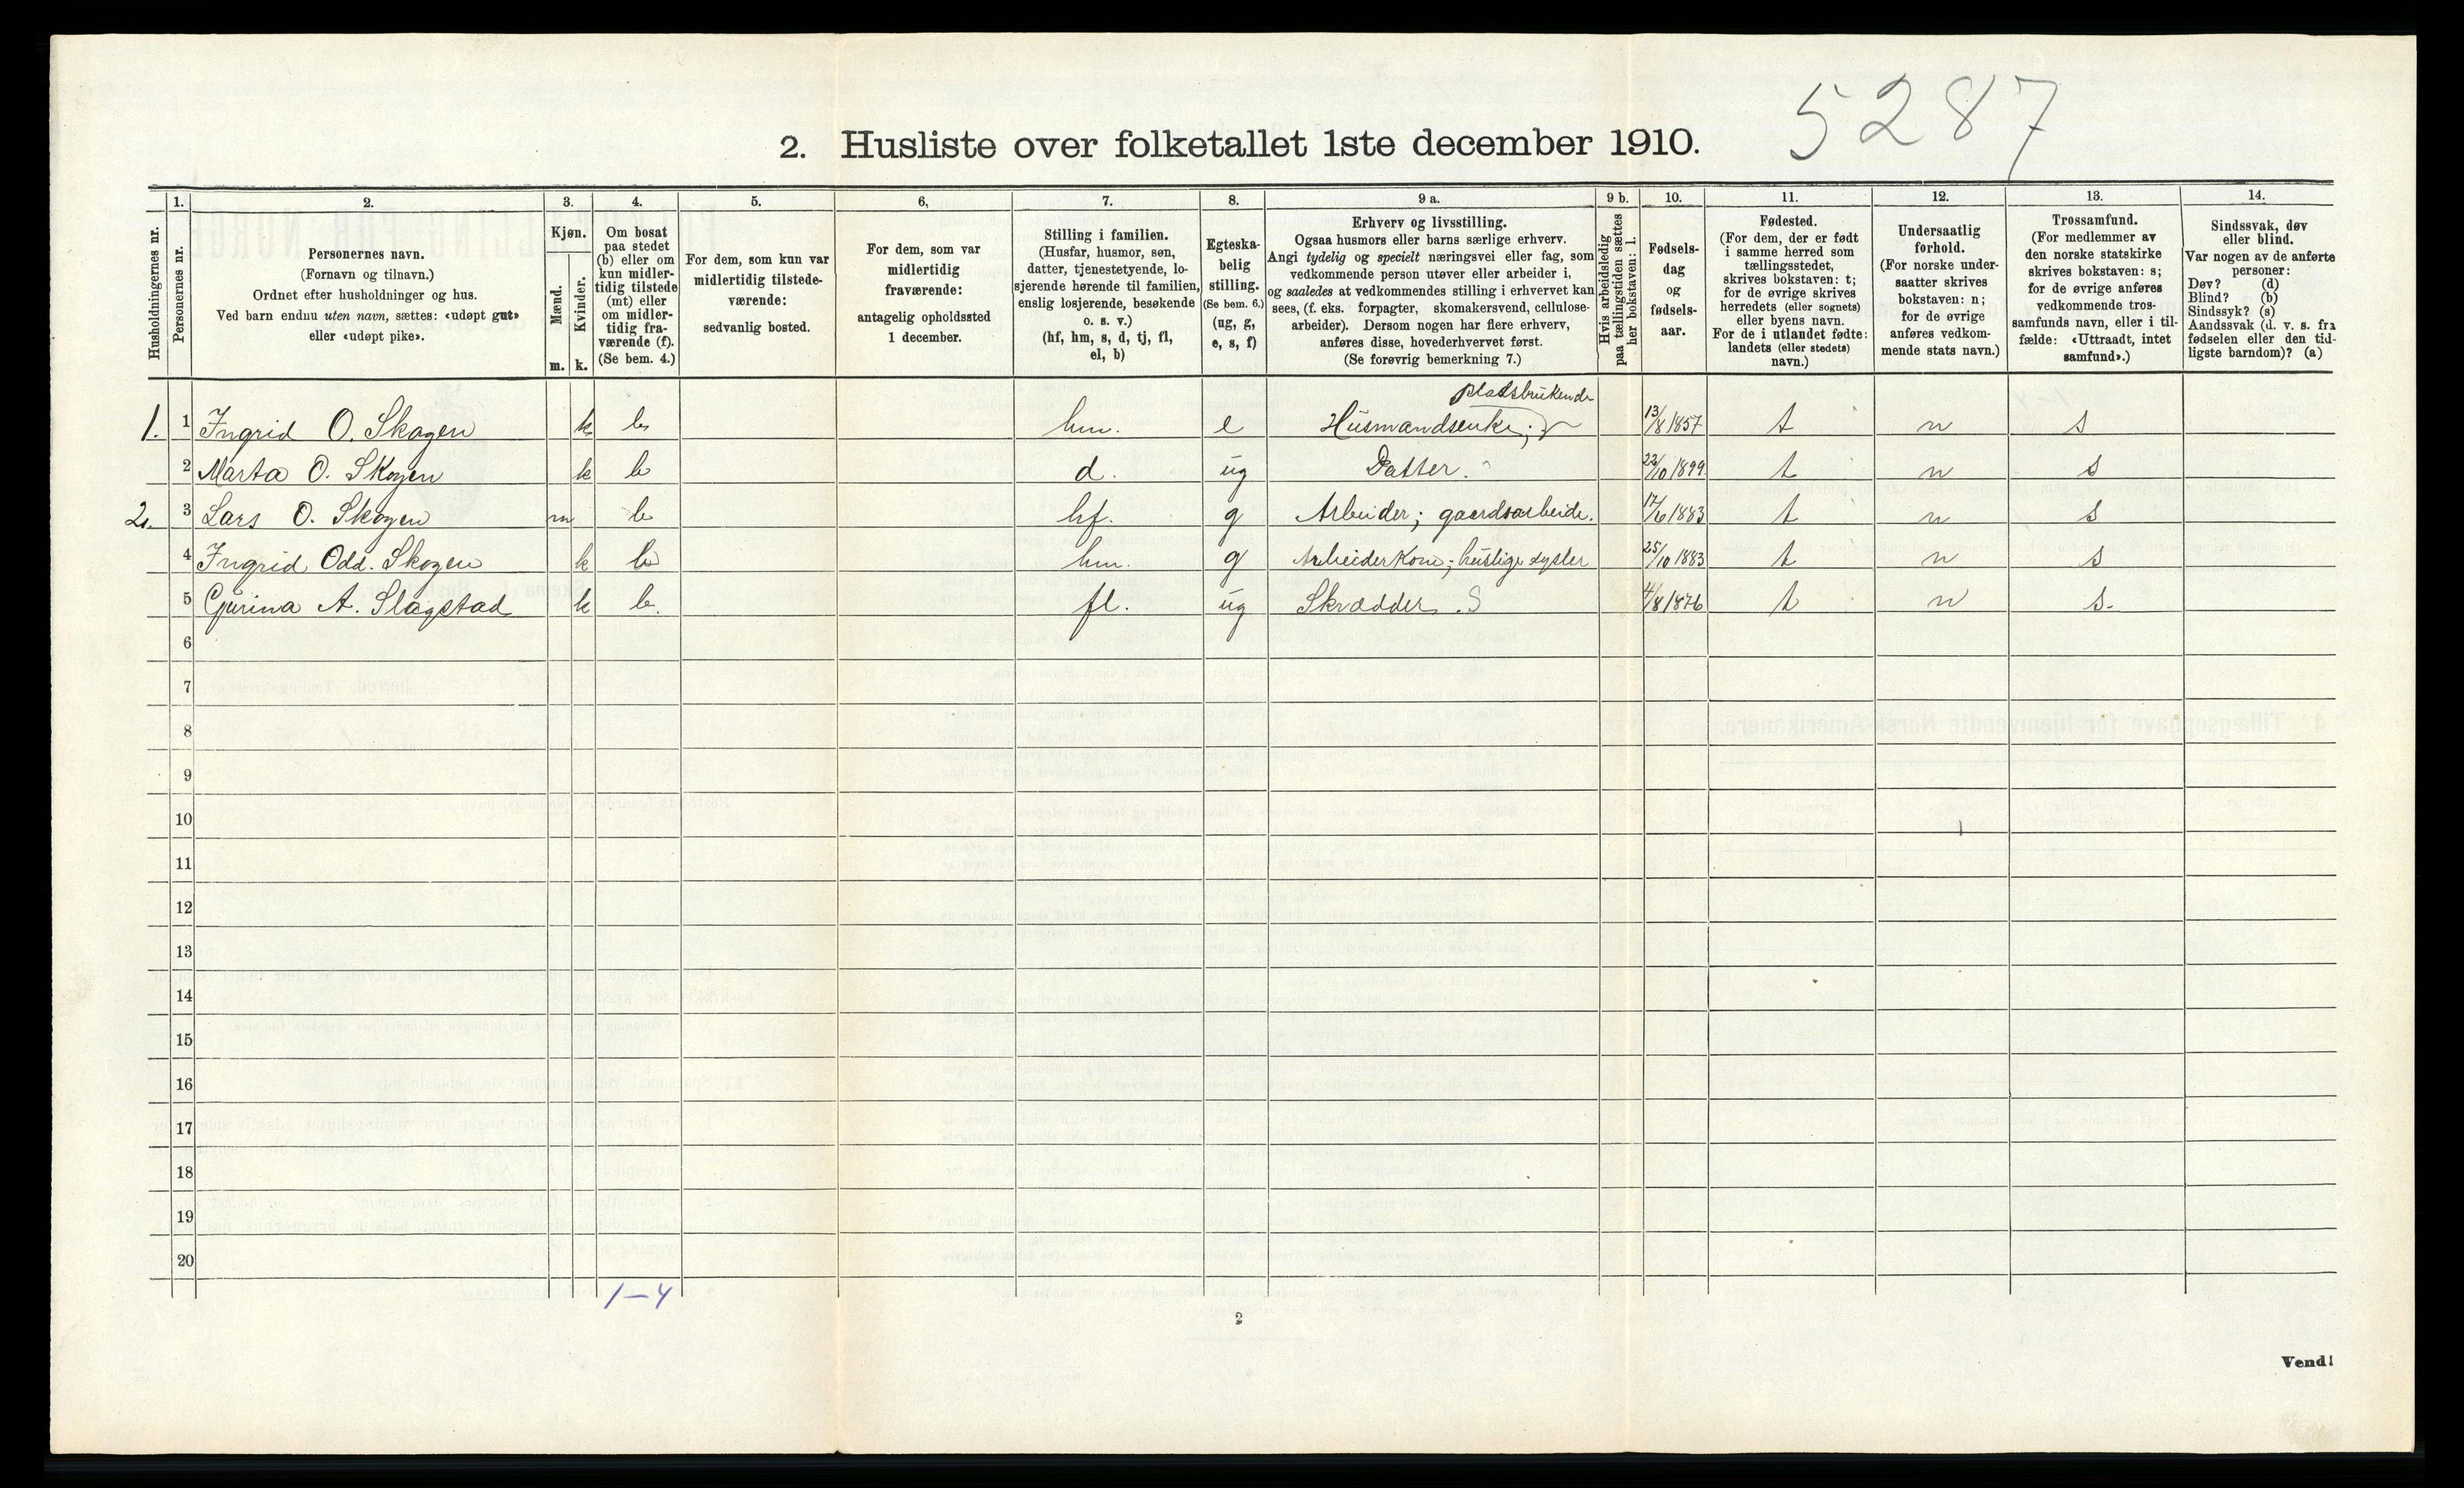 5287
2. Husliste over folketallet 1ste december 1910.
Husholdningernes nr.
1.
Personernes nr.
2.
Personernes navn.
(Fornavn og tilnavn.)
Ordnet efter husholdninger og hus.
Ved barn endnu uten navn, sættes: «udøpt gut»
eller «udøpt pike».
3.
Kjøn.
Mænd.
Kvinder.
m. k.
4.
Om bosat
paa stedet
(b) eller om
kun midler-
tidig tilstede
(mt) eller
om midler-
tidig fra-
værende (f).
(Se bem. 4.)
5.
For dem, som kun var
midlertidig tilstede-
værende:
sedvanlig bosted.
6.
For dem, som var
midlertidig
fraværende:
antagelig opholdssted
1 december.
7.
Stilling i familien.
(Husfar, husmor, søn,
datter, tjenestetyende, lo-
sjerende hørende til familien,
enslig losjerende, besøkende
o. s. v.)
(hf, hm, s, d, tj, fl,
el, b)
8.
Egteska-
belig
stilling.
(Se bem. 6.)
(ug, g,
e, s, f)
9 a.
Erhverv og livsstilling.
Ogsaa husmors eller barns særlige erhverv.
Angi tydelig og specielt næringsvei eller fag, som
vedkommende person utøver eller arbeider i,
og saaledes at vedkommendes stilling i erhvervet kan
sees, (f. eks. forpagter, skomakersvend, cellulose-
arbeider). Dersom nogen har flere erhverv,
anføres disse, hovederhvervet først.
(Se forøvrig bemerkning 7.)
9 b.
Hvis arbeidsledig
paa tællingstiden sættes
her bokstaven: l.
10.
Fødsels-
dag
og
fødsels-
aar.
11.
Fødested.
(For dem, der er født
i samme herred som
tællingsstedet,
skrives bokstaven: t;
for de øvrige skrives
herredets (eller sognets)
eller byens navn.
For de i utlandet fødte:
landets (eller stedets)
navn.)
12.
Undersaatlig
forhold.
(For norske under-
saatter skrives
bokstaven: n;
for de øvrige
anføres vedkom-
mende stats navn.)
13.
Trossamfund.
(For medlemmer av
den norske statskirke
skrives bokstaven: s;
for de øvrige anføres
vedkommende tros-
samfunds navn, eller i til-
fælde: «Uttraadt, intet
samfund».)
14.
Sindssvak, døv
eller blind.
Var nogen av de anførte
personer:
Døv? (d)
Blind? (b)
Sindssyk? (s)
Aandssvak (d. v. s. fra
fødselen eller den tid-
ligste barndom)? (a)
pladsbrukende
1. 1 Ingrid O. Skogen k b hm. e Husmandsenke; 13/8 1857 t n s
2 Marta O. Skogen k b d. ug Datter. 22/10 1899 t n s
2. 3 Lars O. Skogen m b hf. g Arbeider; gaardsarbeide. 17/6 1883 t n s
4 Ingrid Odd. Skogen k b hm. g Arbeiderkone; huslige sysler 25/10 1883 t n s
5 Gurina A. Slagstad k b. fl. ug Skrædder. S 4/8 1876 t n s.
6
7
8
9
10
11
12
13
14
15
16
17
18
19
20
1-4
2
Vend!